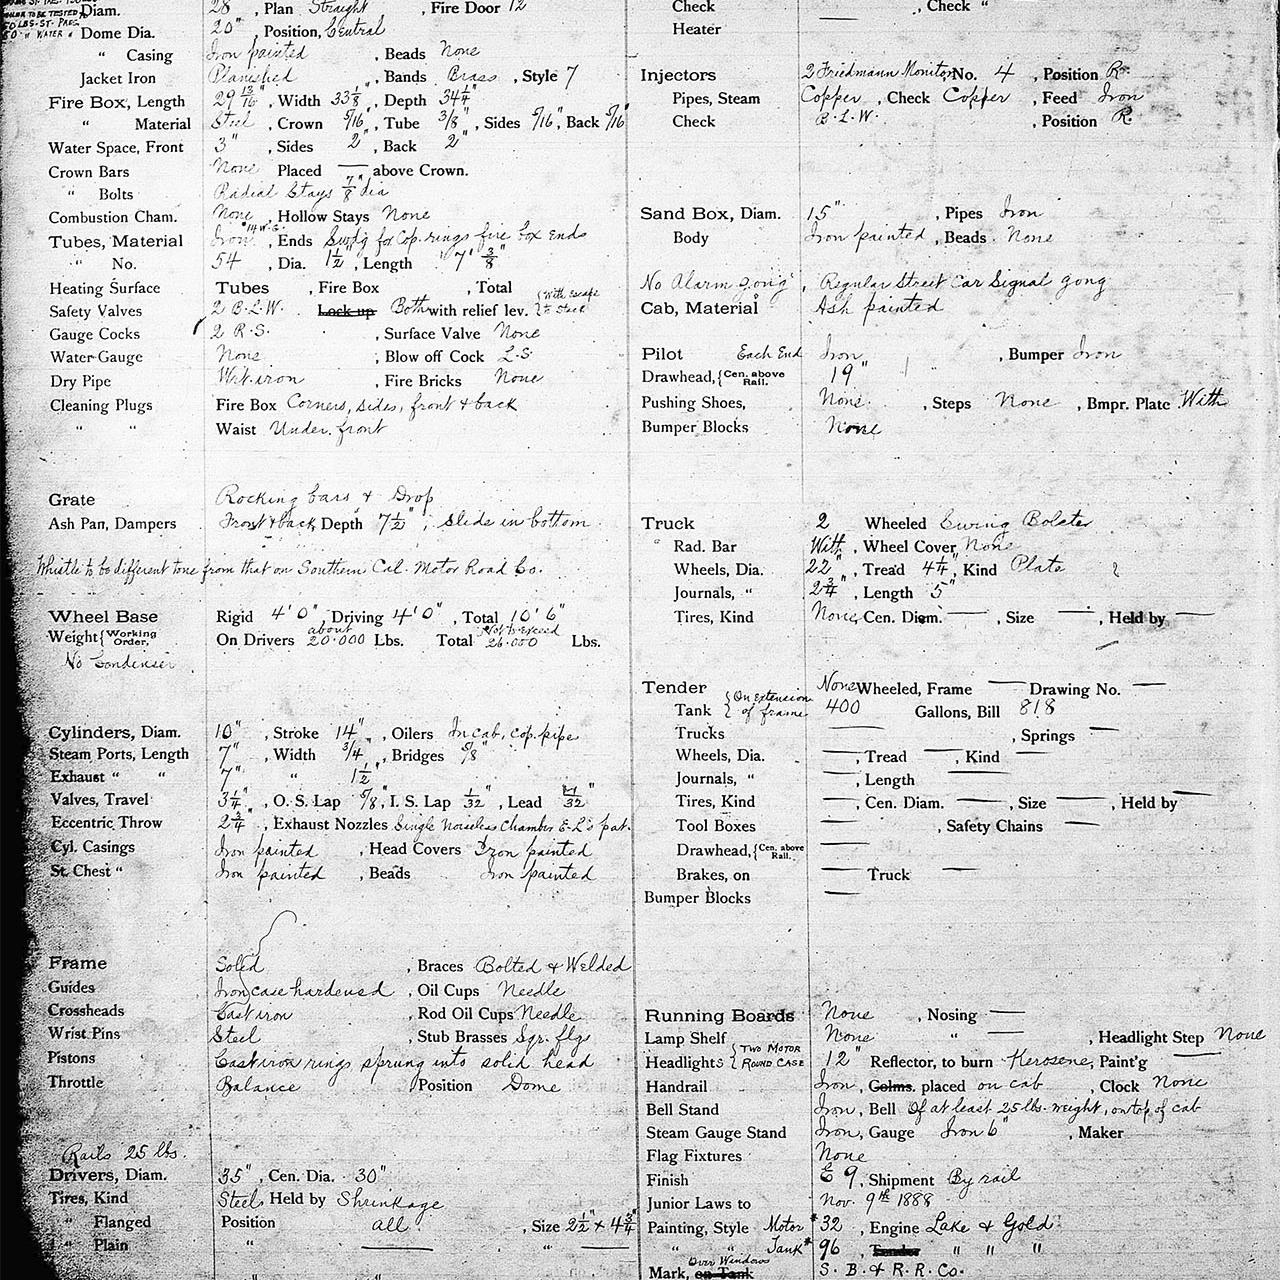 Diam. 28", Plan Straight, Fire Door 12
Dome Dia. 20", Position, Central
" Casing Iron painted, Beads None
Jacket Iron Planished, Bands Brass, Style 7
Fire Box, Length 29 13/16", Width 33 1/8", Depth 34 1/4"
" Material Steel, Crown 5/16", Tube 3/8", Sides 5/16", Back 5/16"
Water Space, Front 3", Sides 2", Back 2"
Crown Bars None Placed — above Crown.
" Bolts Radial Stays 7/8" dia
Combustion Cham. None, Hollow Stays None
Tubes, Material Iron #14 W.G., Ends Swdg for Cop. rings fire box ends
" No. 54, Dia. 1 1/2", Length 7' 3/8"
Heating Surface Tubes , Fire Box , Total
Safety Valves 2 B.L.W. Lock-up Both with relief lev. {With Escape to Stack
Gauge Cocks 2 R.S. , Surface Valve None
Water Gauge None ; Blow off Cock L.S.
Dry Pipe Wrt. iron , Fire Bricks None
Cleaning Plugs Fire Box Corners, sides, front & back
" " Waist Under. front
Grate Rocking bars & Drop
Ash Pan, Dampers Front & back Depth 7 1/2"; Slide in bottom
Whistle to be different tone from that on Southern Cal. Motor Road Co.
Wheel Base Rigid 4' 0", Driving 4' 0", Total 10' 6"
Weight {Working Order, On Drivers about 20.000 Lbs. Total Not to exceed 26.000 Lbs.
No Condenser
Cylinders, Diam. 10", Stroke 14", Oilers In cab, cop. pipe
Steam Ports, Length 7", Width 3/4", Bridges 5/8"
Exhaust " " 7" " 1 1/2"
Valves, Travel 3 1/4", O. S. Lap 5/8", I. S. Lap 1/32", Lead /32"
Eccentric Throw 2 3/4", Exhaust Nozzles Single Noiseless Chamber E-L's pat.
Cyl. Casings Iron painted , Head Covers Iron painted
St. Chest " Iron painted , Beads Iron painted
Frame Solid , Braces Bolted & Welded
Guides Iron case hardened , Oil Cups Needle
Crossheads Cast iron , Rod Oil Cups Needle
Wrist Pins Steel , Stub Brasses Sqr. flgs
Pistons Cast iron rings sprung into solid head
Throttle Balance Position Dome
Rails 25 lbs.
Drivers, Diam. 35", Cen. Dia. 30"
Tires, Kind Steel Held by Shrinkage
" Flanged Position all , Size 2 1/2" x 4 3/4"
" Plain " — " —
Check , Check "
Heater —
Injectors 2 Friedmann Monitor No. 4 , Position R.
Pipes, Steam Copper , Check Copper , Feed Iron
Check B.L.W. , Position R.
Sand Box, Diam. 15" , Pipes Iron
Body Iron painted , Beads None
No Alarm gong , Regular Street Car Signal gong
Cab, Material Ash painted
Pilot Each End Iron , Bumper Iron
Drawhead, {Cen. above Rail. 19"
Pushing Shoes, None , Steps None , Bmpr. Plate With
Bumper Blocks None
Truck 2 Wheeled Swing Bolster
" Rad. Bar With, Wheel Cover None
Wheels, Dia. 22", Tread 4 1/4, Kind Plate
Journals, " 2 3/4", Length 5"
Tires, Kind None, Cen. Diam. — , Size — , Held by —
Tender None Wheeled, Frame — Drawing No. —
Tank {On extension of frame 400 Gallons, Bill 818
Trucks — , Springs —
Wheels, Dia. — , Tread — , Kind —
Journals, " — , Length —
Tires, Kind — , Cen. Diam. — , Size — , Held by —
Tool Boxes — , Safety Chains —
Drawhead, {Cen. above Rail. —
Brakes, on — Truck —
Bumper Blocks —
Running Boards None , Nosing —
Lamp Shelf None " — , Headlight Step None
Headlights {Two Motor Round Case 12" Reflector, to burn Kerosene, Paint'g —
Handrail Iron, Colms. placed on cab , Clock None
Bell Stand Iron, Bell Of at least 25 lbs. weight, on top of cab
Steam Gauge Stand Iron, Gauge Iron 6" , Maker
Flag Fixtures None
Finish E 9, Shipment By rail
Junior Laws to Nov. 9th 1888
Painting, Style Motor #32 , Engine Lake & Gold
" " Tank #96 , Tender " " "
Mark, Over Windows on Tank S. B. & R. R. Co.